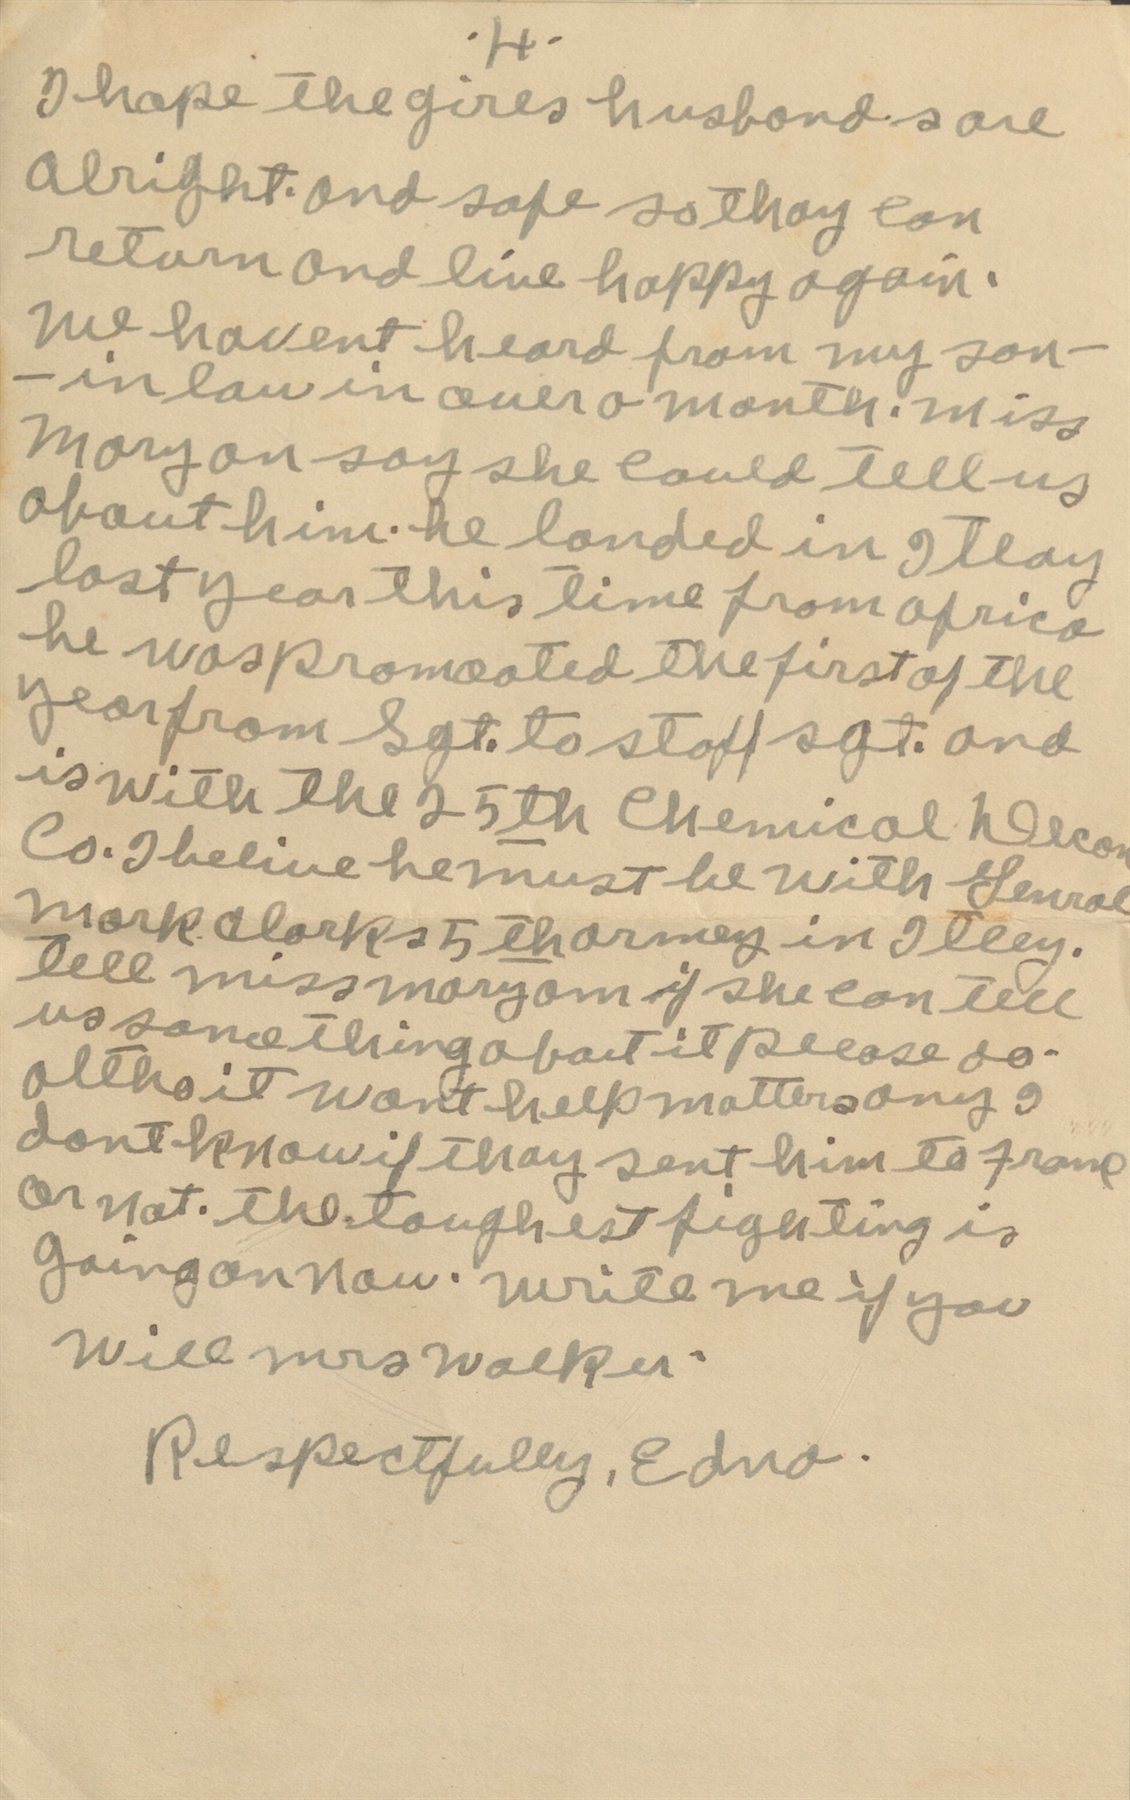 .4.
I hope the gires husbonds are
alright. and safe so thay can
return and live happy again.
We havent heard from my son-
-in law in over a month. miss
Maryan say she could tell us
about him. he landed in Itlay
last year this time from africa
he was promoated the first of the
year from Sgt. to staff sgt. and
is with the 25th Chemical Decon
Co. I belive he must be with Genral
mark clarks 5th armey in Itley.
tell miss maryam if she can tell
us something about it please do.
altho it wont help matters any I
dont know if thay sent him to Franc
or not. the toughest fighting is
going on now. write me if you
will mrs walker.
Respectfully, Edna.